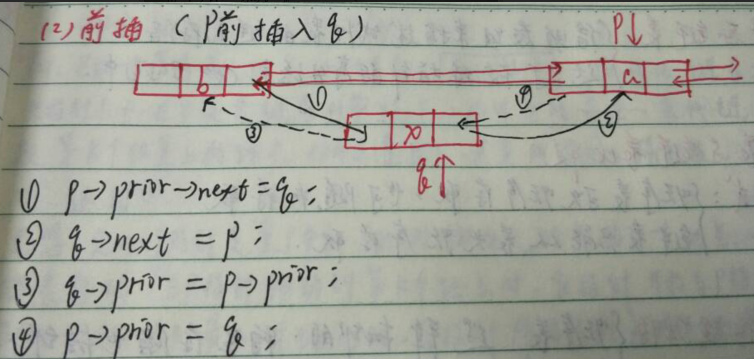 (2) 前插 (P前插入q)
P↓
b
a
①
④
③
x
②
q↑
① p→prior→next=q;
② q→next = p;
③ q→prior = p→prior;
④ p→prior = q;